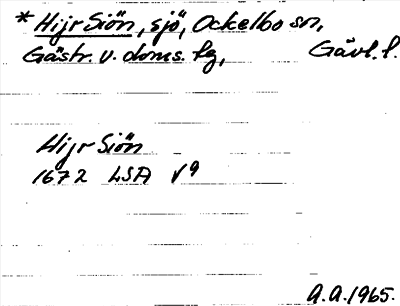 * Hijr Siön, sjö, Ockelbo sn,
Gästr. v. doms. lg, Gävl. l.
Hijr Siön
1672 LSA V9
A.A. 1965.